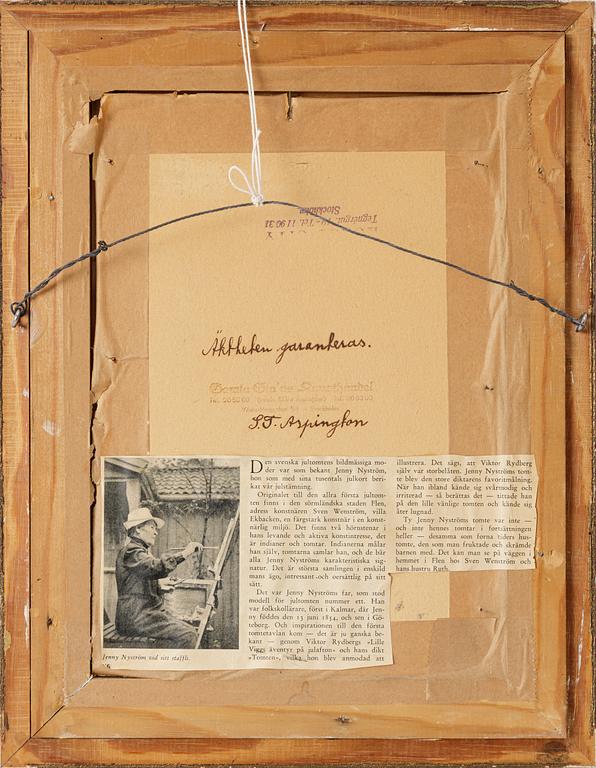 Tegnérgat. Tel. 11 96 31
Stockholm
Äktheten garanteras.
Konsthandel
S.F. Aspington
Den svenska jultomtens bildmässiga mo-
der var som bekant Jenny Nyström,
hon som med sina tusentals julkort beri-
kat vår julstämning.
Originalet till den allra första jultom-
ten finns i den sörmländska staden Flen,
adress konstnären Sven Wenström, villa
Ekbacken, en färgstark konstnär i en konst-
närlig miljö. Det finns två hörnstenar i
hans levande och aktiva konstintresse, det
är indianer och tomtar. Indianerna målar
han själv, tomtarna samlar han, och de bär
alla Jenny Nyströms karakteristiska sig-
natur. Det är största samlingen i enskild
mans ägo, intressant och oersättlig på sitt
sätt.
Det var Jenny Nyströms far, som stod
modell för jultomten nummer ett. Han
var folkskollärare, först i Kalmar, där Jen-
ny föddes den 13 juni 1854, och sen i Gö-
teborg. Och inspirationen till den första
tomtetavlan kom — det är ju ganska be-
kant — genom Viktor Rydbergs »Lille
Viggs äventyr på julafton» och hans dikt
»Tomten», vilka hon blev anmodad att
illustrera. Det sägs, att Viktor Rydberg
själv var storbelåten. Jenny Nyströms tom-
te blev den store diktarens favoritmålning.
När han ibland kände sig svårmodig och
irriterad — så berättas det — tittade han
på den lille vänlige tomten och kände sig
åter lugnad.
Ty Jenny Nyströms tomte var inte —
och inte hennes tomtar i fortsättningen
heller — desamma som forna tiders hus-
tomte, den som man fruktade och skrämde
barnen med. Det kan man se på väggen i
hemmet i Flen hos Sven Wenström och
hans hustru Ruth.
Jenny Nyström vid sitt staffli.